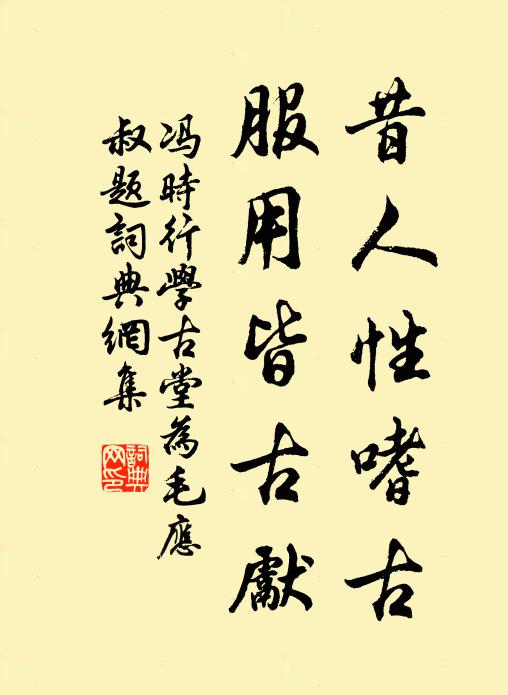 昔人性嗜古
服用皆古獻
冯時行學古堂為毛應
叔題詞典網集
詞典
网印